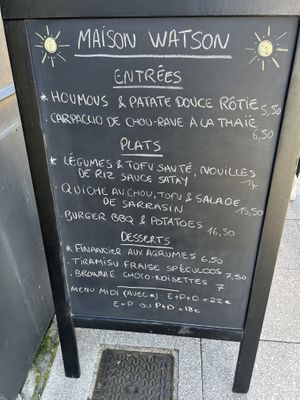 MAISON WATSON
ENTRÉES
* HOUMOUS & PATATE DOUCE RÔTIE 5,50
CARPACCIO DE CHOU-RAVE À LA THAÏE
6,50
PLATS
* LÉGUMES & TOFU SAUTÉ, NOUILLES
DE RIZ SAUCE SATAY 14
• QUICHE AU CHOU, TOFU & SALADE
DE SARRASIN 15,50
• BURGER BBQ & POTATOES 16,50
DESSERTS
* FINANCIER AUX AGRUMES 6,50
• TIRAMISU FRAISE SPÉCULOOS 7,50
• BROWNIE CHOCO-NOISETTES 7
MENU MIDI (AVEC *) : E+P+D = 22€
E+P OU P+D = 18€